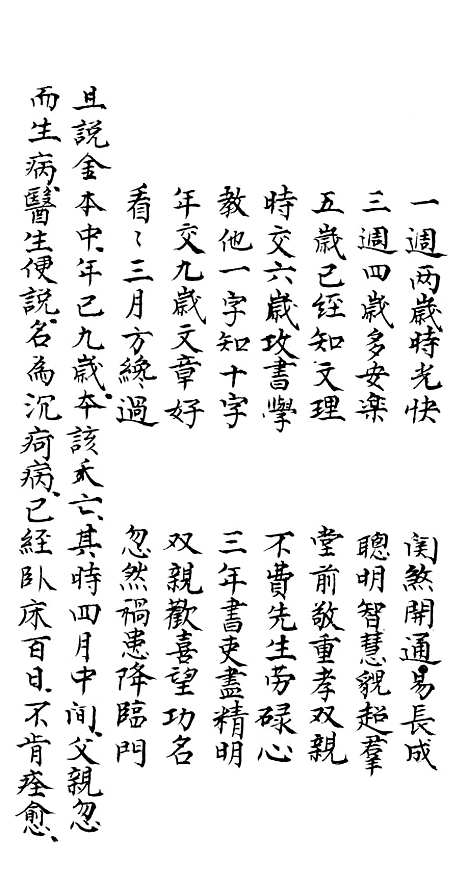 一週两歲時光快　関煞開通易長成
三週四歲多安楽　聰明智慧貌超羣
五歲已經知文理　堂前敬重孝双親
時交六歲攻書學　不費先生劳碌心
教他一字知十字　三年書吏盡精明
年交九歲文章好　双親歡喜望功名
看〻三月方纔過　忽然禍患降臨門
且説金本中、年已九歲、本該夭亡、其時四月中间、父親忽
而生病、醫生便説、名為沉疴病、已經卧床百日、不肯痊愈、